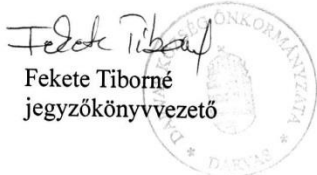 Fekete Tiborné
Fekete Tiborné
jegyzőkönyvvezető
DARVAS KÖZSÉG ÖNKORMÁNYZATA
* DARVAS *